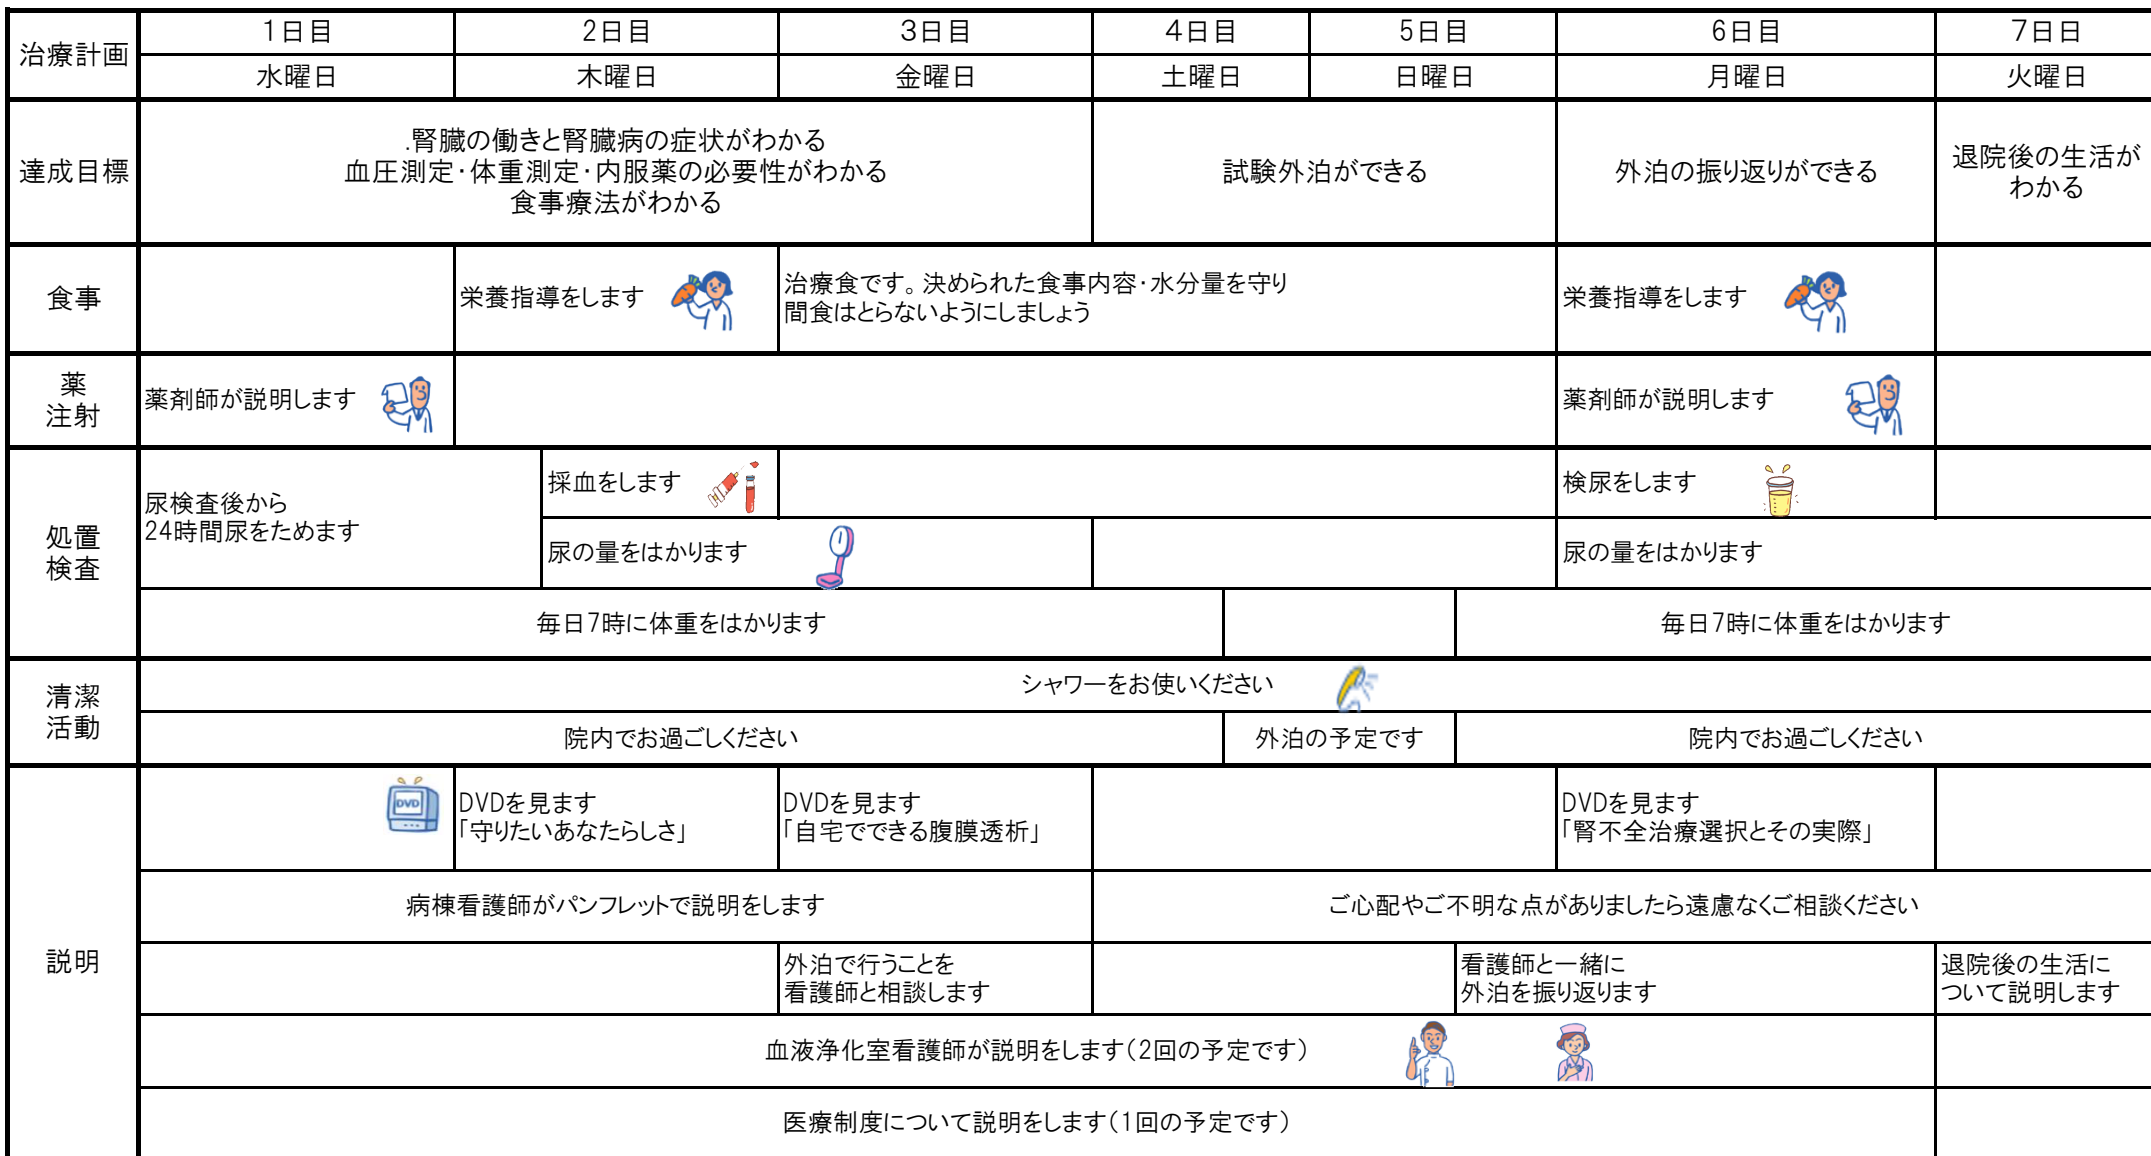 治療計画
1日目
2日目
3日目
4日目
5日目
6日目
7日日
水曜日
木曜日
金曜日
土曜日
日曜日
月曜日
火曜日
達成目標
.腎臓の働きと腎臓病の症状がわかる
血圧測定・体重測定・内服薬の必要性がわかる
食事療法がわかる
試験外泊ができる
外泊の振り返りができる
退院後の生活が
わかる
食事
栄養指導をします
治療食です。決められた食事内容・水分量を守り
間食はとらないようにしましょう
栄養指導をします
薬
注射
薬剤師が説明します
薬剤師が説明します
処置
検査
尿検査後から
24時間尿をためます
採血をします
検尿をします
尿の量をはかります
尿の量をはかります
毎日7時に体重をはかります
毎日7時に体重をはかります
清潔
活動
シャワーをお使いください
院内でお過ごしください
外泊の予定です
院内でお過ごしください
説明
DVD
DVDを見ます
「守りたいあなたらしさ」
DVDを見ます
「自宅でできる腹膜透析」
DVDを見ます
「腎不全治療選択とその実際」
病棟看護師がパンフレットで説明をします
ご心配やご不明な点がありましたら遠慮なくご相談ください
外泊で行うことを
看護師と相談します
看護師と一緒に
外泊を振り返ります
退院後の生活に
ついて説明します
血液浄化室看護師が説明をします（2回の予定です）
医療制度について説明をします（1回の予定です）